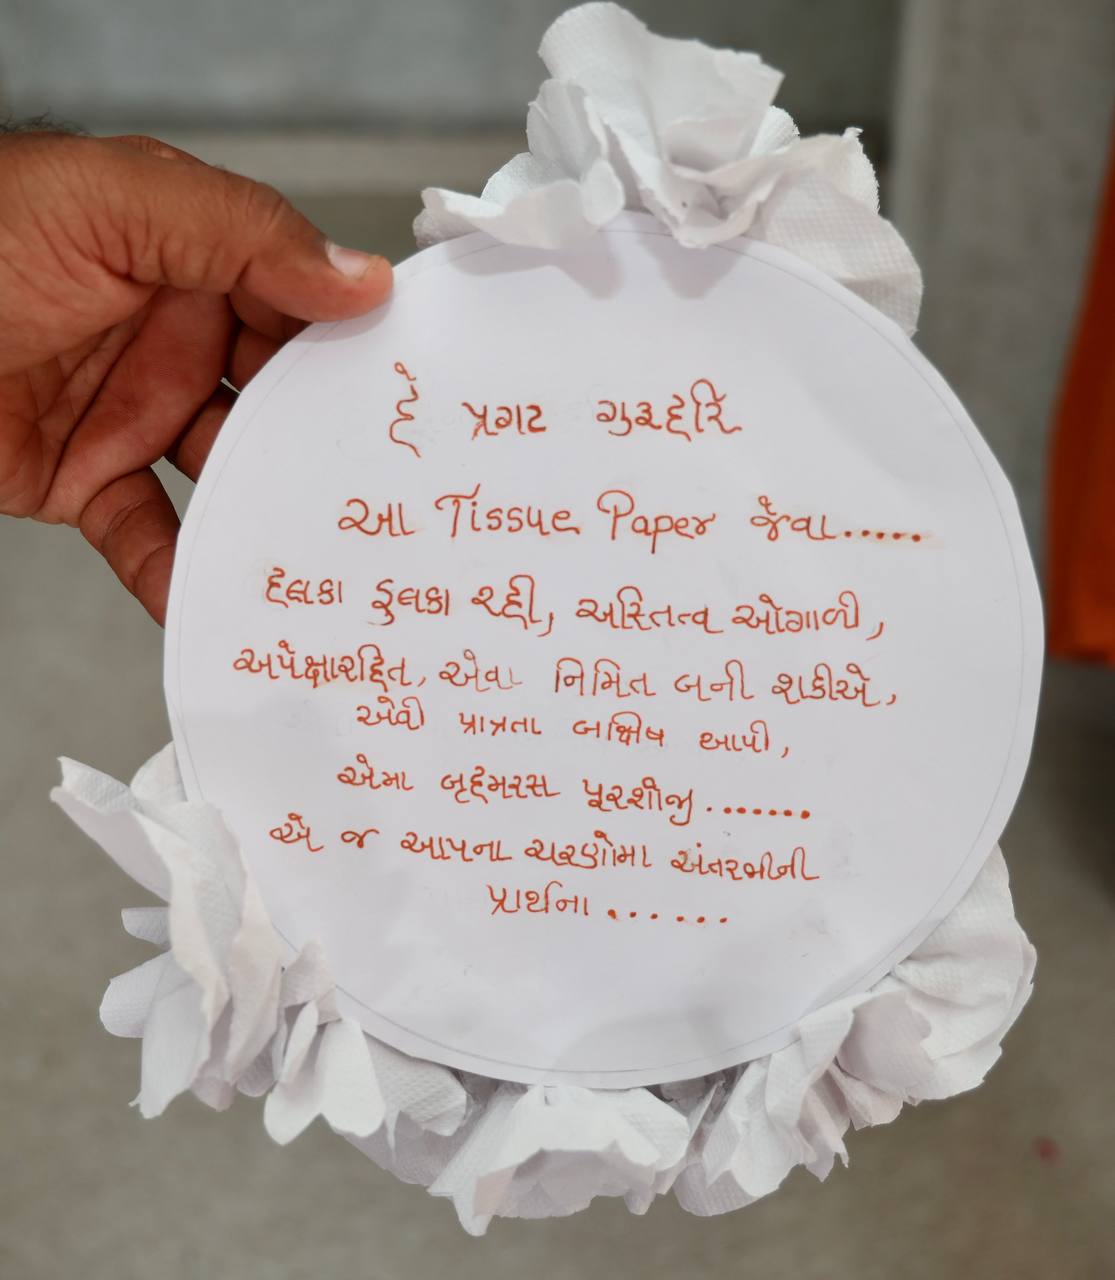 હે પ્રગટ ગુરુહરિ
આ Tissue Paper જેવા.....
હલકા ફુલકા રહી, અસ્તિત્વ ઓગાળી,
અપેક્ષારહિત, એવા નિમિત બની શકીએ,
એવી પ્રાત્રતા બક્ષિષ આપી,
એમા બૃહમરસ પૂરશોજી.......
એ જ આપના ચરણોમા અંતરભીની
પ્રાર્થના......